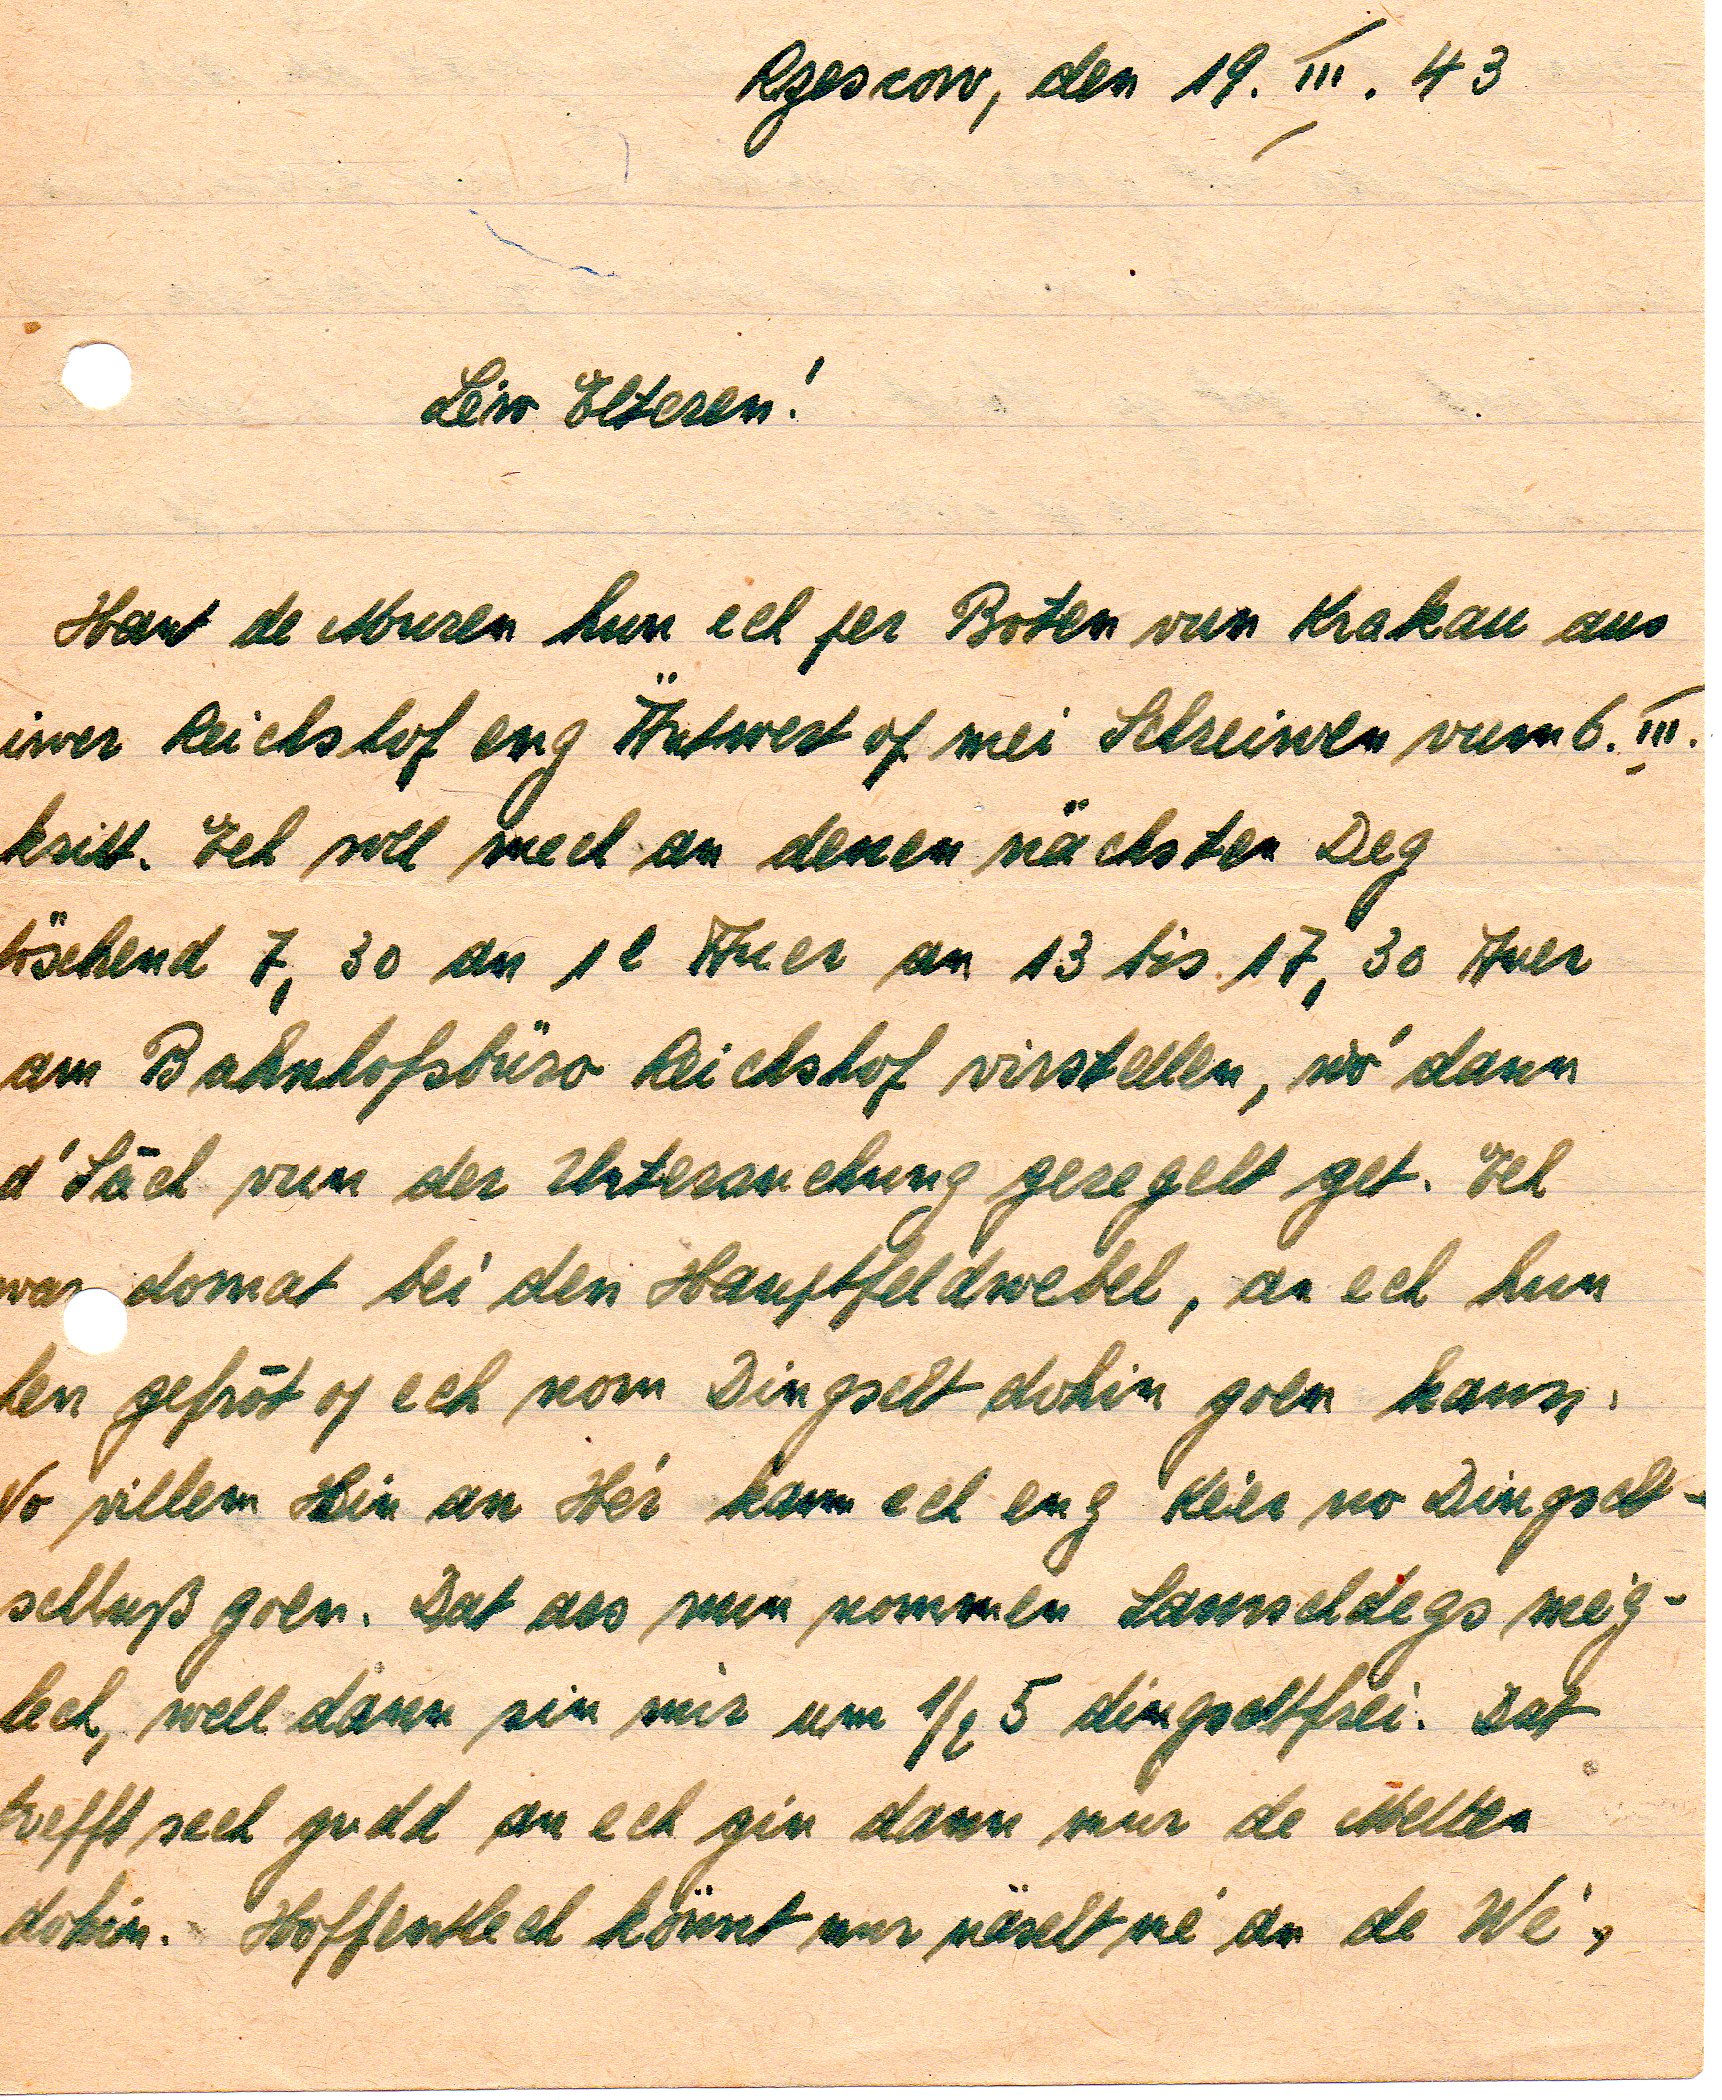 Rzescow, den 19. III. 43
Léiw Elteren!
Haut de Muren hun ech per Boten vun Krakau aus
iwer Reichshof eng Äntwert of mei Schreiwen vum 6. III.
kritt. Ech soll mech an denen nächsten Deg
töschend 7,30 an 12 Auer an 13 bis 17,30 Auer
am Bahnhofsbüro Reichshof virstellen, wó dann
d'Sāch vun der Untersuchung geregelt get. Ech
war domat bei den Hauptfeldwebel, an ech hun
hen gefrōt of ech nom Dingscht dohin goen kann.
No villem Hin an Hér kann ech eng Kéier no Dingscht-
schluß goen. Dat ass nun nommen Samschdegs még-
lech, well dann sin mir um 1/2 5 dingschtfrei. Dat
trefft sech gudd an ech gin dann mur de Metten
dohin. Hoffentlech könnt mur näscht mé an de Wé,